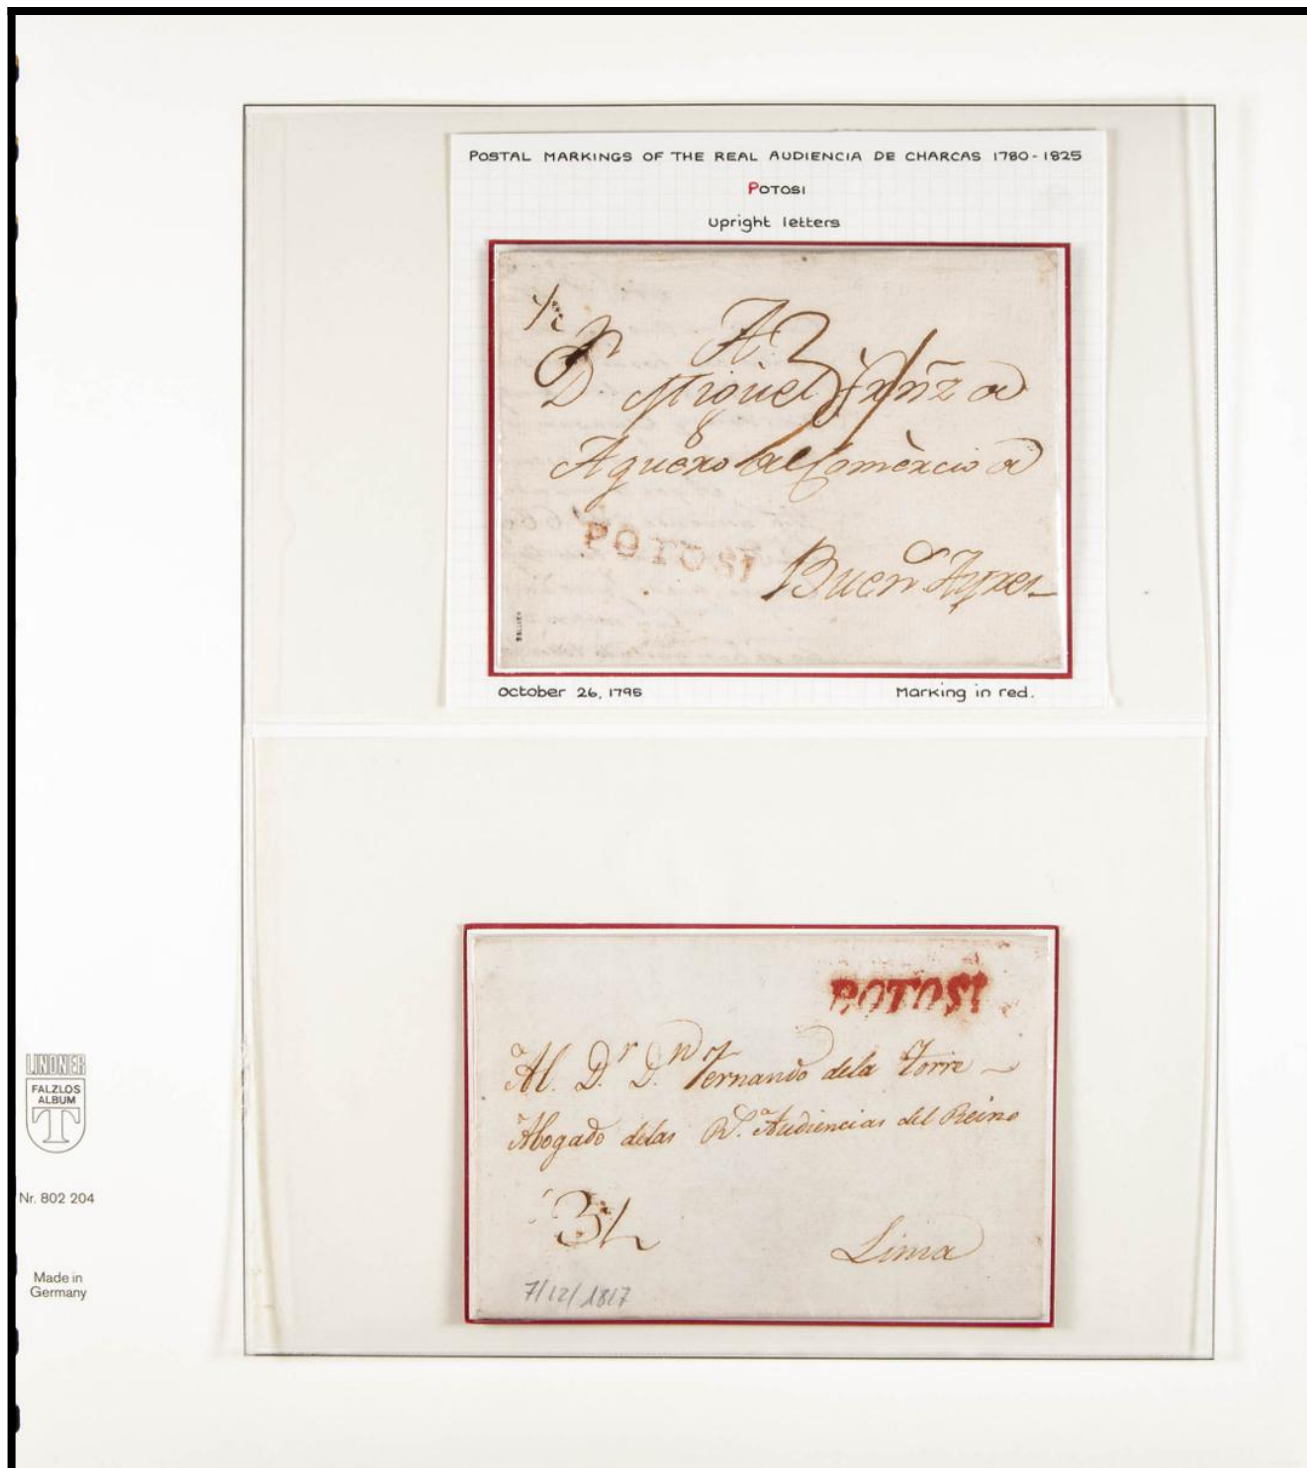 POSTAL MARKINGS OF THE REAL AUDIENCIA DE CHARCAS 1780-1825
POTOSI
upright letters
A
D. Miguel Frñz d
Aguero del Comèrcio d
POTOSI
Buen.s Ayres
October 26, 1795
Marking in red.
POTOSI
Al D.r D.n Fernando dela Torre
Abogado delas R.s Audiencias del Reino
Lima
7/12/1817
LINDNER
FALZLOS
ALBUM
T
Nr. 802 204
Made in
Germany